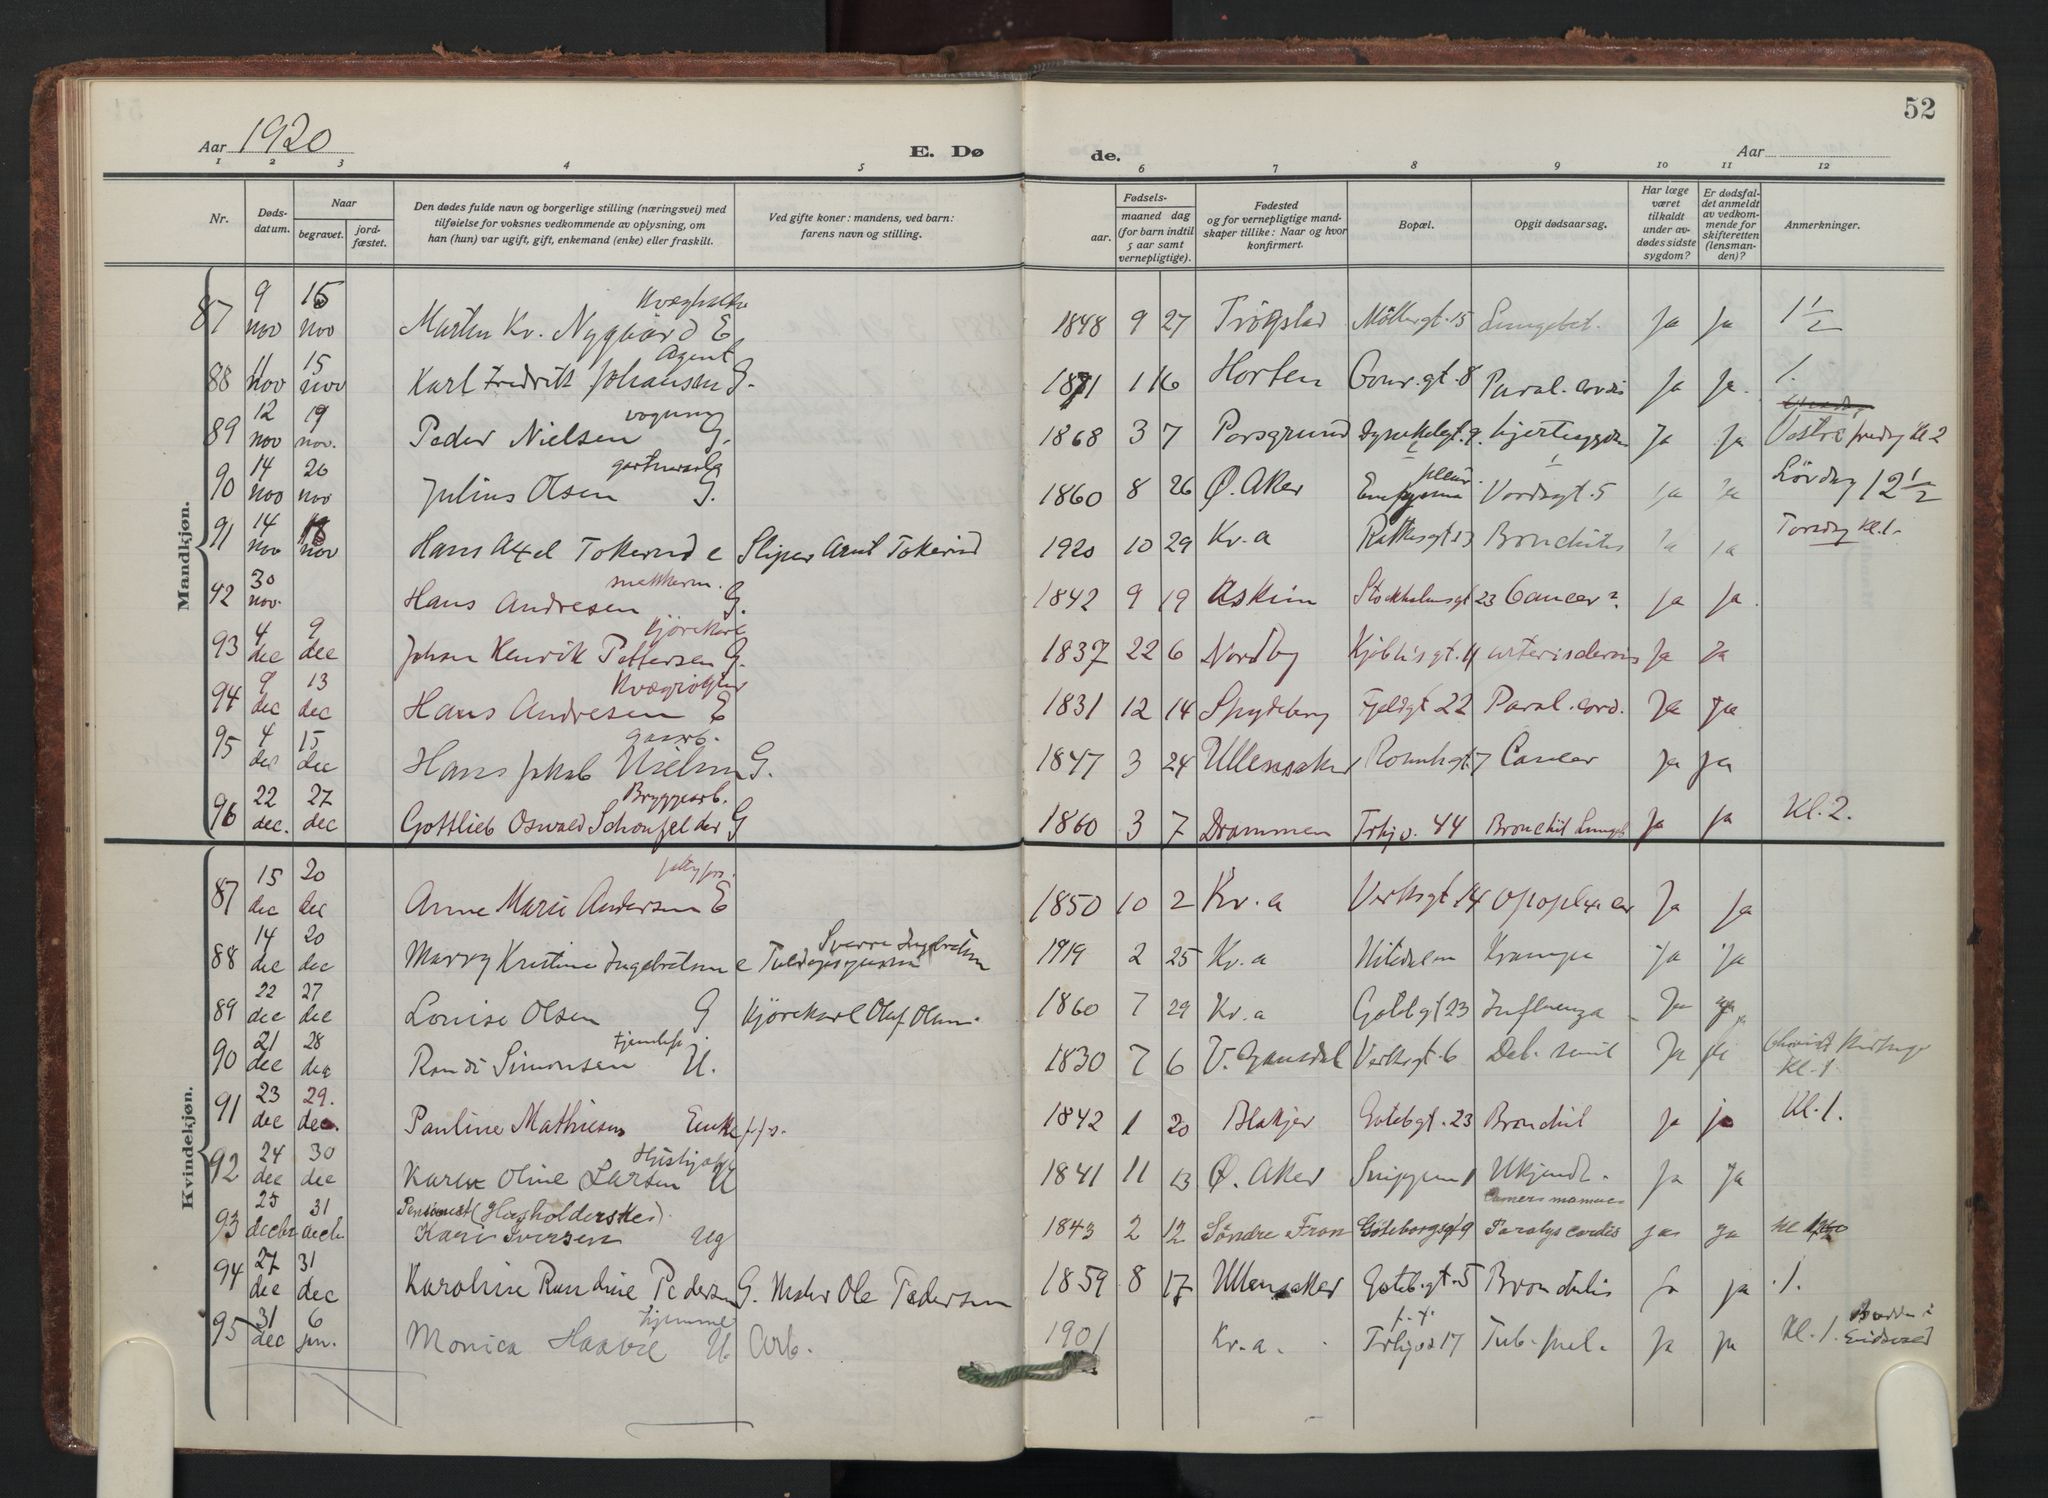 52
Aar 1920
E. Dø
de.
Aar
1 2 3 4 5 6 7 8 9 10 11 12
Nr.
Døds-
datum.
Naar
begravet.
jord-
fæstet.
Den dødes fulde navn og borgerlige stilling (næringsvei) med
tilføielse for voksnes vedkommende av oplysning, om
han (hun) var ugift, gift, enkemand (enke) eller fraskilt.
Ved gifte koner: mandens, ved barn:
farens navn og stilling.
Fødsels-
aar.
maaned dag
(for barn indtil
5 aar samt
vernepligtige).
Fødested
og for vernepligtige mand-
skaper tillike: Naar og hvor
konfirmert.
Bopæl.
Opgit dødsaarsag.
Har læge
været
tilkaldt
under av-
dødes sidste
sygdom?
Er dødsfal-
det anmeldt
av vedkom-
mende for
skifteretten
(lensman-
den)?
Anmerkninger.
Mandkjøn.
87 9 nov 15 nov Martin Kr. Nygaard E 1848 9 27 Trøgstad Møllergt. 15 Lungebet. Ja Ja 1 1/2
Agent
88 11 nov 15 nov Karl Fredrik Johansen G. 1871 1 16 Horten Gouv.gt. 8 Paral. cordis Ja Ja. 1.
89 12 nov 19 nov. Peder Nielsen G. 1868 3 7 Porsgrund Ja Ja Vestre fredag Kl 2
90 14 nov 20 nov Julius Olsen G. 1860 8 26 Ø. Aker Ja Ja Lørdag 12 1/2
91 14 nov 18 nov Hans Axel Tokerud e Sliper Arnt Tokerud 1920 10 29 Kr.a Bronchitis Ja Ja Torsdag Kl. 1.
snekkerm.
92 30 nov. Hans Andresen G. 1842 9 19 Askim Stockholmsgt 23 Cancer? Ja Ja.
Kjørekarl
93 4 dec 9 dec Johan Henrik Pettersen G. 1837 22 6 Nordby Ja Ja
94 9 dec 13 dec Hans Andresen E 1831 12 14 Spydeberg Fjeldgt 22 Paral. cord. Ja Ja
gaarb.
95 4 dec 15 dec Hans Jakob Nielsen G. 1847 3 24 Ullensaker Cancer Ja Ja
Bryggearb.
96 22 dec. 27 dec Gottlieb Oswald Schonfelder G 1860 3 7 Drammen Trhjv. 44 Bronchit Ja Ja Kl. 2.
Kvindekjøn.
87 15 dec 20 dec Anne Marie Andersen E 1850 10 2 Kr.a Verksgt. 14 Ja Ja
88 14 dec 20 dec Marry Kristine Ingebretsen e Sverre Ingebretsen 1919 2 25 Kr.a Krampe Ja Ja
89 22 dec 27 dec Louise Olsen G Kjørekarl Olaf Olsen. 1860 7 29 Kr.a Gøtebgt 23 Influenza Ja Ja
90 21 dec 28 dec Randi Simonsen U. 1830 7 6 V. Gausdal Verksgt. 6 Deb. senil Ja Ja Kl. 1.
91 23 dec 29. dec. Pauline Mathiesen Enke f.f.v. 1842 1 20 Blakjer Gøtebgt. 23 Bronchit Ja ja Kl. 1.
92 24 dec 30 dec Karen Oline Larsen U 1841 11 13 Ø. Aker Ukjendt. Ja Ja
Pensionist (Husholderske)
93 25 decbr. 31 decbr. Kari Iversen Ug 1843 2 12 Søndre Fron Gøteborgsgt 9 Paralys cordis ja ja
94 27 dec 31 dec Karoline Randine Pedersen G. Ole Pedersen 1859 8 17 Ullensaker Gøtebgt. 5 Bronchitis Ja ja 1.
95 31 dec 6 jan. Monica U. Arb. 1901 Kr.a. Trhjv 17 Tub. pul. Ja Ja Kl. 1. Eidsvold